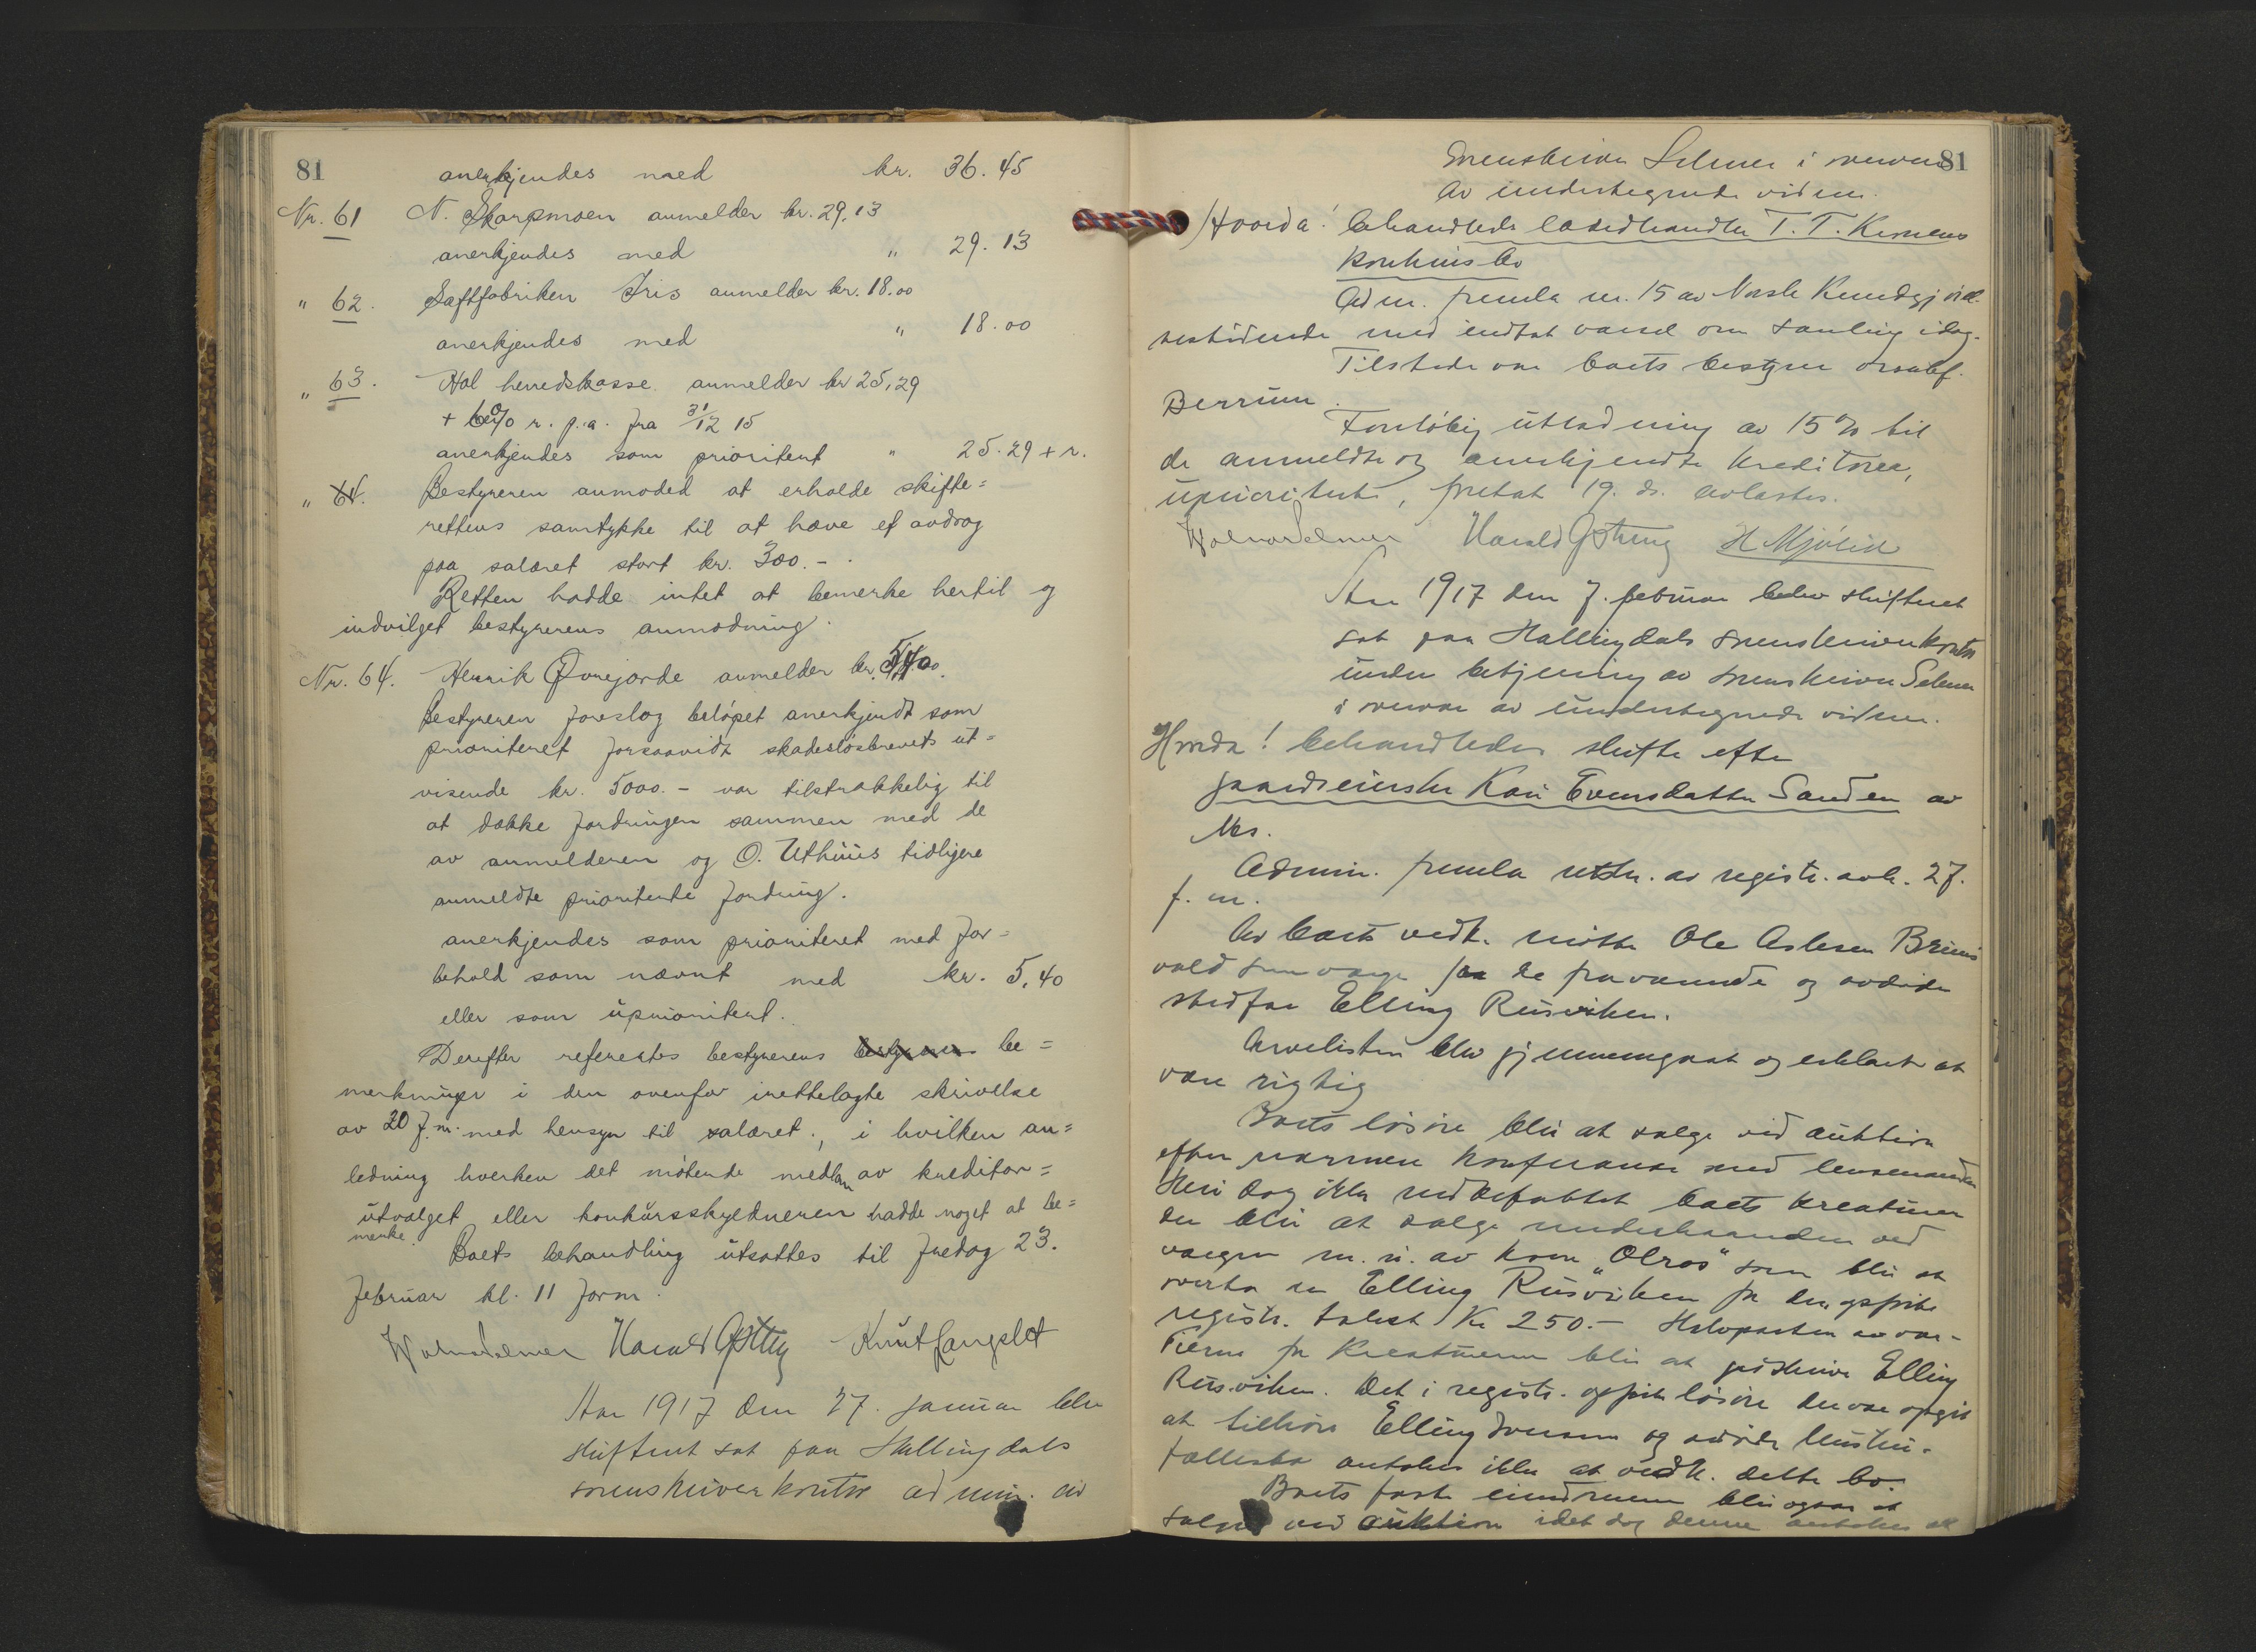 81
anerkjendes med kr. 36.45
Nr. 61 N. Skarpmoen anmelder kr. 29.13
anerkjendes med " 29.13
" 62. Saftfabriken Iris anmelder kr. 18.00
anerkjendes med " 18.00
" 63. Hol herredskasse anmelder kr 25,29
+ 6% r. p.a. fra 31/12 15
anerkjendes som prioritert " 25.29 + r.
" 64. Bestyreren anmoded at erholde skifte=
rettens samtykke til at hæve et avdrag
paa salæret stort kr. 300.-
Retten hadde intet at bemerke hertil og
indvilget bestyrerens anmodning.
Nr. 64. Henrik Øvrejorde anmelder kr. 5,40
Bestyreren foreslog beløpet anerkjendt som
prioriteret forsaavidt skadesløsbrevets ut=
visende kr. 5000.- var tilstrækkelig til
at dække fordringen sammen med de
av anmelderen og O. Uthuus tidligere
anmeldte prioriterte fordring.
anerkjendes som prioriteret med for=
behold som nævnt med kr. 5.40
eller som uprioritert.
Derefter refereates bestyrerens bestyrerens be=
merkninger i den ovenfor irettelagte skrivelse
av 20 f.m. med hensyn til salæret, i hvilken an=
ledning hverken det møtende medlem av kreditor=
utvalget eller konkursskyldneren hadde noget at be=
merke.
Boets behandling utsattes til fredag 23.
februar kl. 11 form.
Harald Knut Langslet
Aar 1917 den 27. januar blev
skifteret sat paa Hallingdals
sorenskriverkontor admin. av
81
sorenskriver Selmer i nærvær
av undertegnede vidner.
Hvorda! behandledes landhandler T. T.
konkursbo
Adm. fremla nr. 15 av Norsk Kundgjørel
sestidende med indtat varsel om samling idag.
Tilstede var boets bestyrer overretssf.
Berrum.
Foreløbig utlodning av 15 % til
de anmeldte og anerkjendte kreditorer,
uprioriterte, foretat 19. ds. avlastes.
Harald H Mjøsen
Aar 1917 den 7. februar blev skifteret
sat paa Hallingdals sorenskriverkontor
under betjening av sorenskriver Selmer
i nærvær av undertegnede vidner.
Hvorda! behandledes skifte efter
gaardeierske Kari Evensdatter Sanden av
Nes.
Admin. fremla utskr. av registr. avh. 27.
f. m.
Av boets vedk. møtte Ole Aslesen
vold som verge for de fraværende og avdødes
stedfar Elling Rusviken.
Arvelisten blev gjennemgaat og erklært at
være rigtig
Boets løsøre blir at sælge ved auktion
efter nærmere konferanse med lensmanden
Heri dog ikke indbefattet boets kreaturer
der blir at sælge underhaanden ved
vergen m. u. av koen "Olros" som blir at
overta av Elling Rusviken for den opførte
registr. takst Kr 250.- Halvparten av
for kreaturerne blir at godskrive Elling
Rusviken. Det i registr. opførte løsøre der var opgit
at tilhøre Elling Iversen og avdøde
antokes ikke at vedk. dette bo.
Boets faste eiendommer blir ogsaa at
sælges ved auktion idet dog denne antokes at